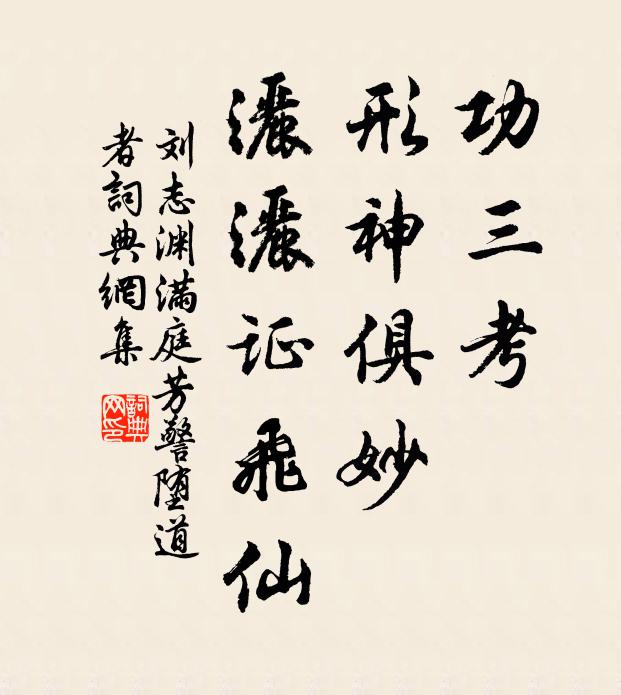 功三考
形神俱妙
灑灑证飛仙
刘志渊满庭芳警堕道
者詞典網集
詞典网印